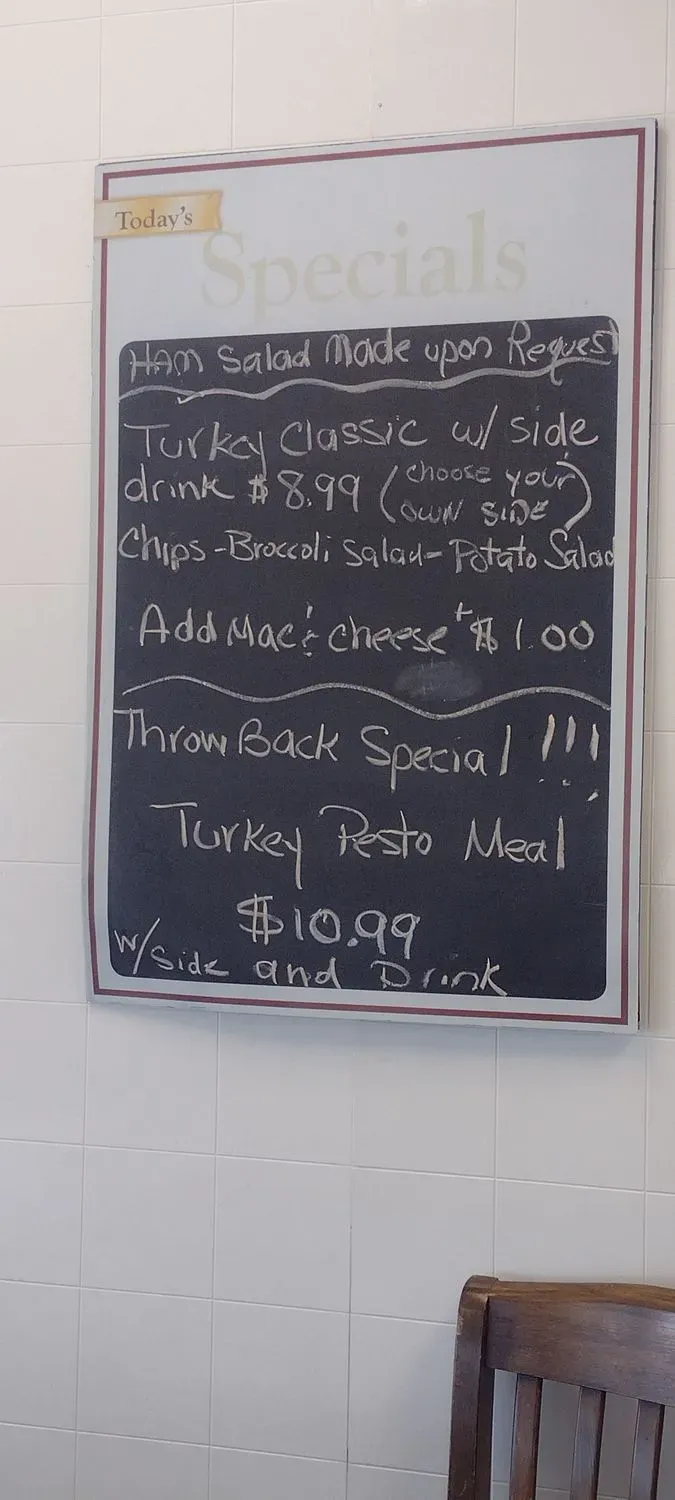 Today's
Specials
Ham Salad Made upon Request
Turkey Classic w/ side
drink $8.99 (choose your
own SiDe)
Chips - Broccoli Salad - Potato Salad
Add Mac & cheese + $1.00
Throw Back Special!!!
Turkey Pesto Meal
$10.99
w/Side and Drink